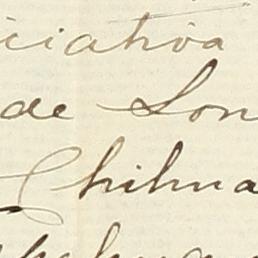 iciativa
de Lon
Chihua